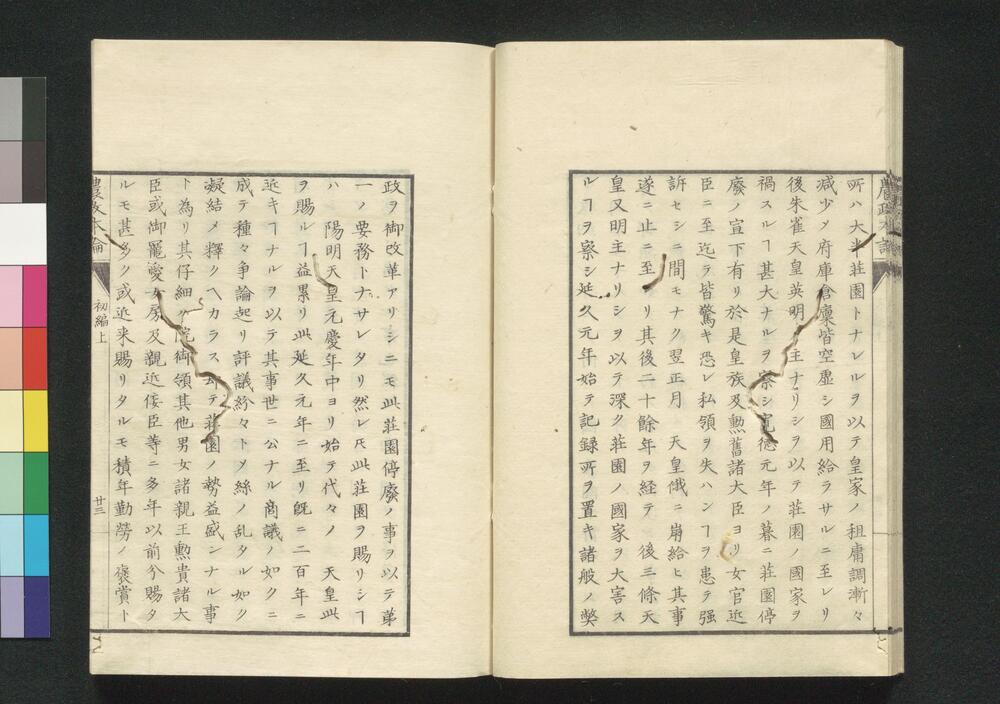 所ハ大半荘園トナレルヲ以テ皇家ノ租庸調漸々
減少メ府庫倉廩皆空虚シ國用給ラサルニ至レリ
後朱雀天皇英明ノ主ナリシヲ以テ荘園ノ國家ヲ
禍スルヿ甚大ナルヲ察シ寛德元年ノ暮ニ荘園停
廢ノ宣下有リ於是皇族及勲舊諸大臣ヨリ女官近
臣ニ至迄テ皆驚キ恐レ私領ヲ失ハンヿヲ患テ强
訴セシニ間モナク翌正月 天皇俄ニ崩給ヒ其事
遂ニ止ニ至レリ其後二十餘年ヲ経テ 後三條天
皇又明主ナリシヲ以テ深ク荘園ノ國家ヲ大害ス
ルヿヲ察シ延久元年始テ記録所ヲ置キ諸般ノ獘
政ヲ御改革アリシニモ此荘園停廢ノ事ヲ以テ第
一ノ要務トナサレタリ然レ𪜈此荘園ヲ賜リシヿ
ハ 陽明天皇元慶年中ヨリ始テ代々ノ 天皇此
ヲ賜ルヿ益累リ此延久元年ニ至リ既ニ二百年ニ
近キヿナルヲ以テ其事世ニ公ナル商議ノ如クニ
成テ種々争論起リ評議紛々トメ絲ノ乱タル如ク
凝結メ釋クヘカラス却テ荘園ノ勢益盛ンナル事
ト為リ其仔細ハ院御領其他男女諸親王勲貴諸大
臣或御寵愛女房及親近倭臣等ニ多年以前分賜タ
ルモ甚多ク或近来賜リタルモ積年勤勞ノ褒賞ト
農政本論
初編上
廿三